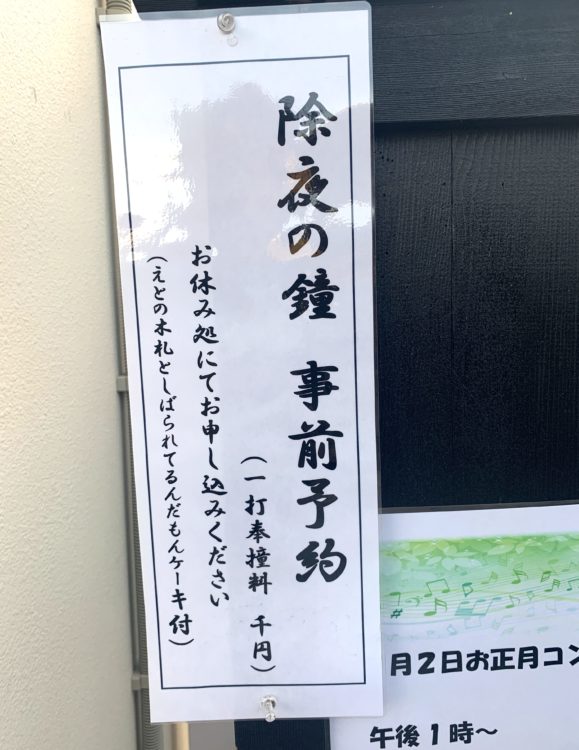 除夜の鐘 事前予約
(一打奉撞料 千円)
お休み処にてお申し込みください
(えとの木札としばられてるんだもんケーキ付)
月2日お正月コン
午後1時~